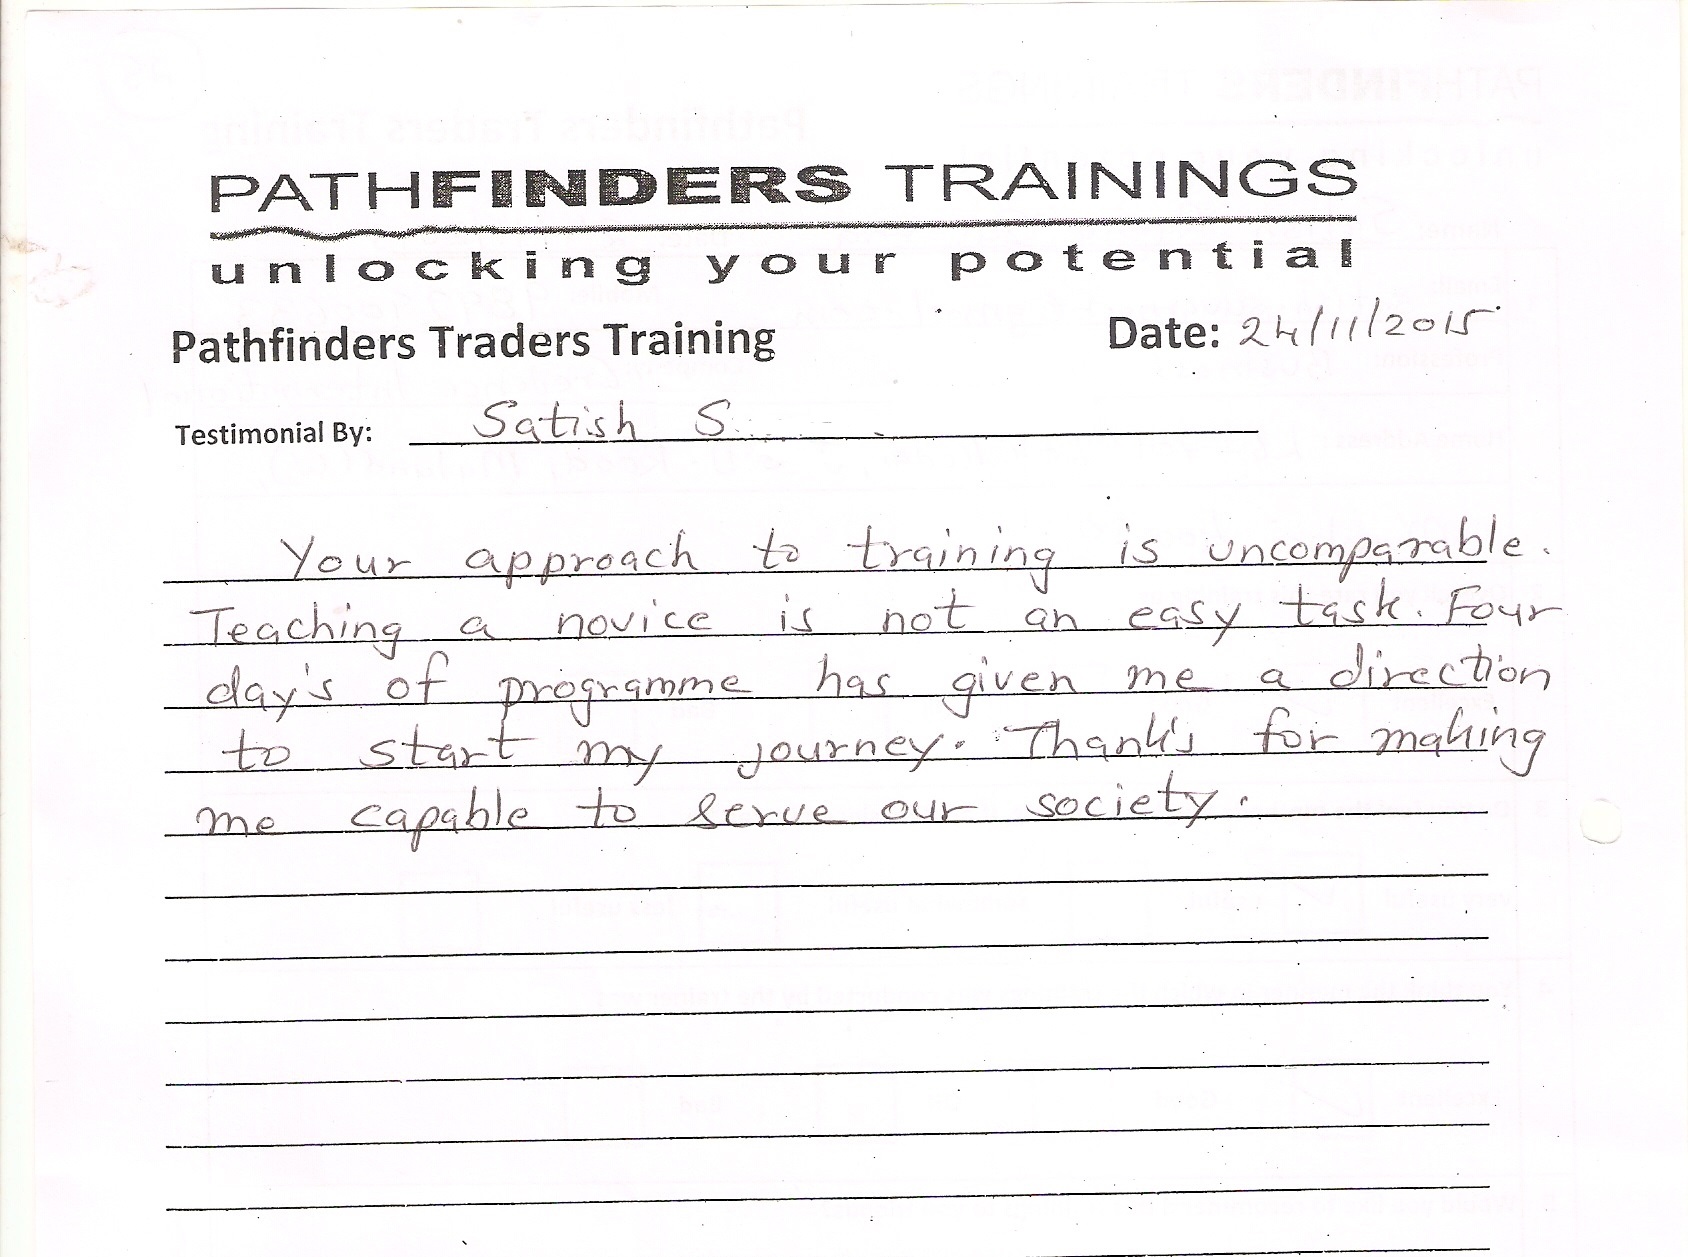 PATHFINDERS TRAININGS
unlocking your potential
Pathfinders Traders Training Date: 24/11/2015
Testimonial By: Satish S
Your approach to training is uncomparable.
Teaching a novice is not an easy task. Four
day's of programme has given me a direction
to start my journey. Thank's for making
me capable to serve our society.